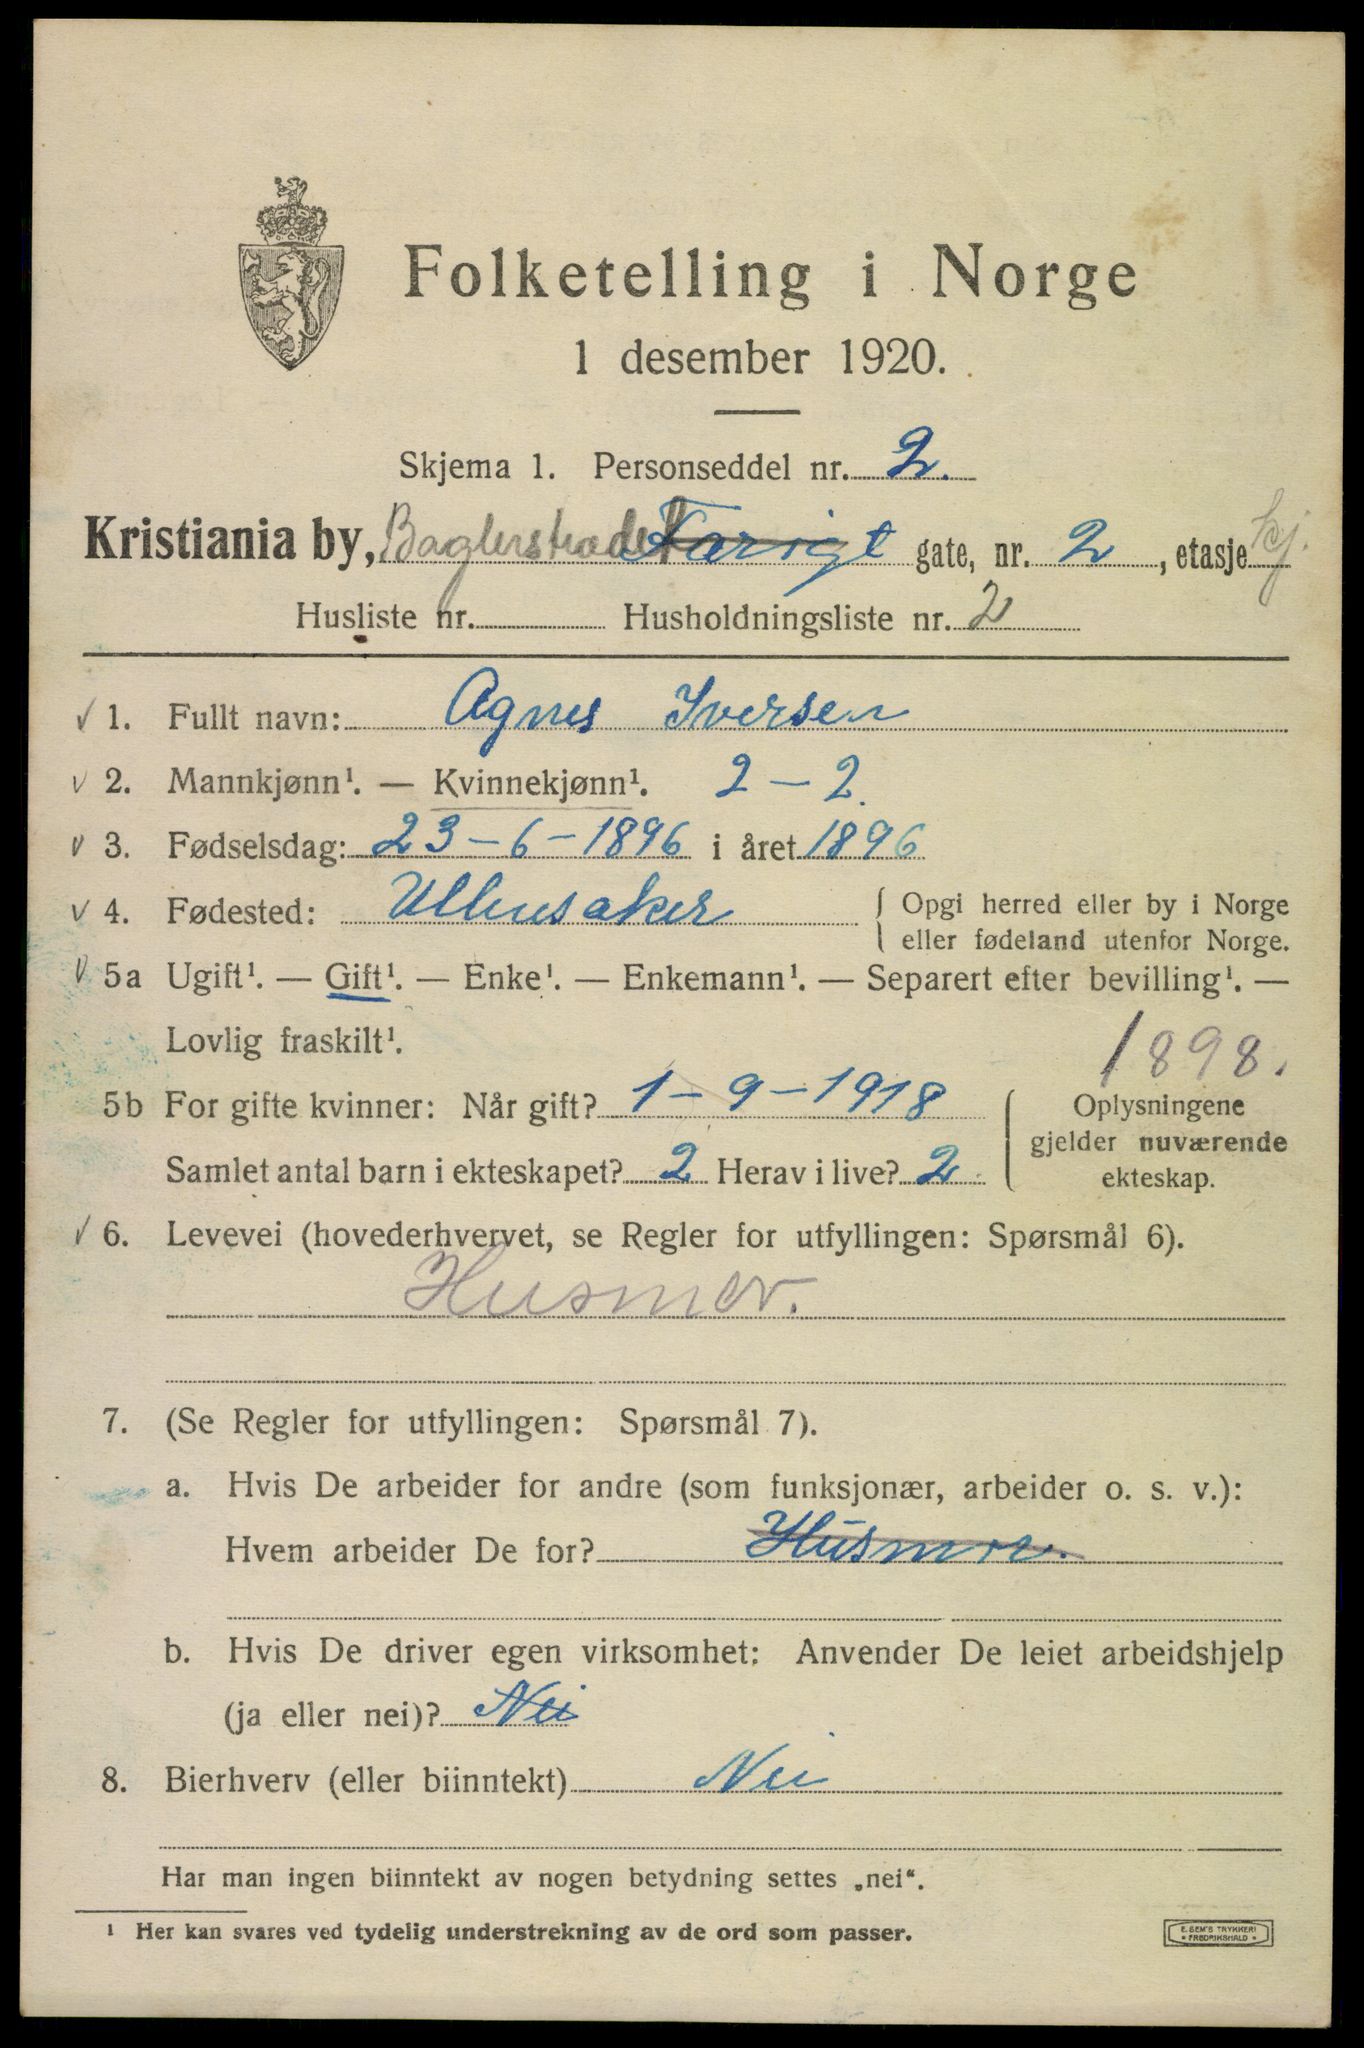 Folketelling i Norge
1 desember 1920.
Skjema 1. Personseddel nr. 2.
Kristiania by, Baglerstrædet gate, nr. 2, etasje kj.
Husliste nr. Husholdningsliste nr. 2
✓ 1. Fullt navn: Agnes Iversen
✓ 2. Mannkjønn¹. — Kvinnekjønn¹. 2 – 2.
✓ 3. Fødselsdag: 23 – 6 – 1896 i året 1896
✓ 4. Fødested: Ullensaker { Opgi herred eller by i Norge
eller fødeland utenfor Norge.
✓ 5a Ugift¹. — Gift¹. — Enke¹. — Enkemann¹. — Separert efter bevilling¹. —
Lovlig fraskilt¹.
1898.
5b For gifte kvinner: Når gift? 1 – 9 – 1918
Samlet antal barn i ekteskapet? 2 Herav i live? 2
{ Oplysningene
gjelder nuværende
ekteskap.
✓ 6. Levevei (hovederhvervet, se Regler for utfyllingen: Spørsmål 6).
Husmor.
7. (Se Regler for utfyllingen: Spørsmål 7).
a. Hvis De arbeider for andre (som funksjonær, arbeider o. s. v.):
Hvem arbeider De for? Husmor.
b. Hvis De driver egen virksomhet: Anvender De leiet arbeidshjelp
(ja eller nei)? Nei
8. Bierhverv (eller biinntekt) Nei
Har man ingen biinntekt av nogen betydning settes „nei“.
¹ Her kan svares ved tydelig understrekning av de ord som passer.
E. SEM'S TRYKKERI
• FREDRIKSHALD •